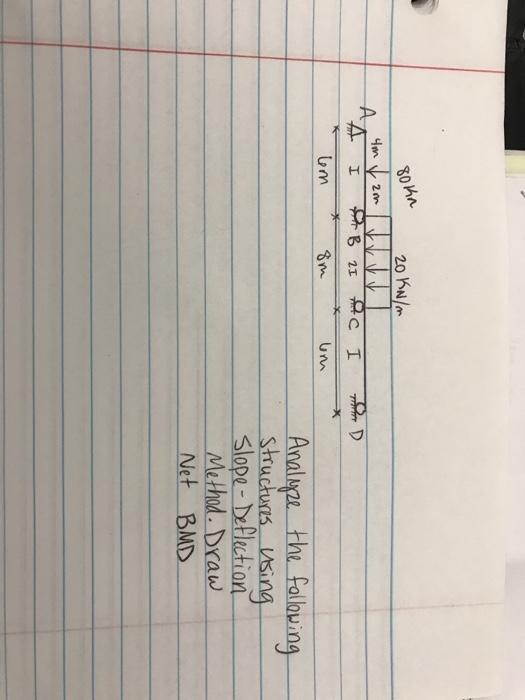 80 Kn
20 KN/m
4m 2m
A I B 2I C I D
6m 8m 6m
Analyze the following
Structures using
Slope-Deflection
Method. Draw
Net BMD